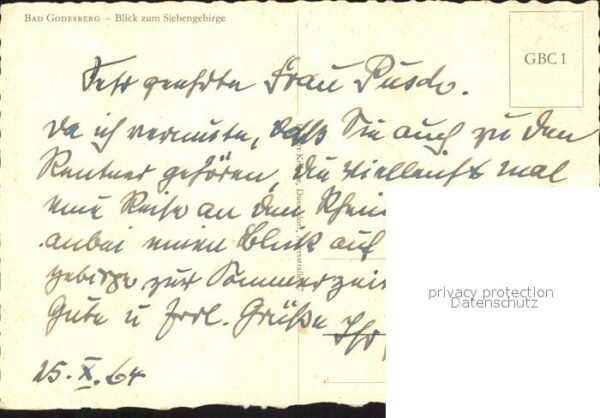 BAD GODESBERG – Blick zum Siebengebirge
GBC 1
Sehr geehrte Frau Pusch.
Da ich vermute, daß Sie auch zu den
Rentner gehören, die vielleicht mal
eine Reise an den Rhein
anbei einen Blick auf
gebirge zur Sommerzeit
Gute u frdl. Grüße Ihr
25. X. 64
privacy protection
Datenschutz